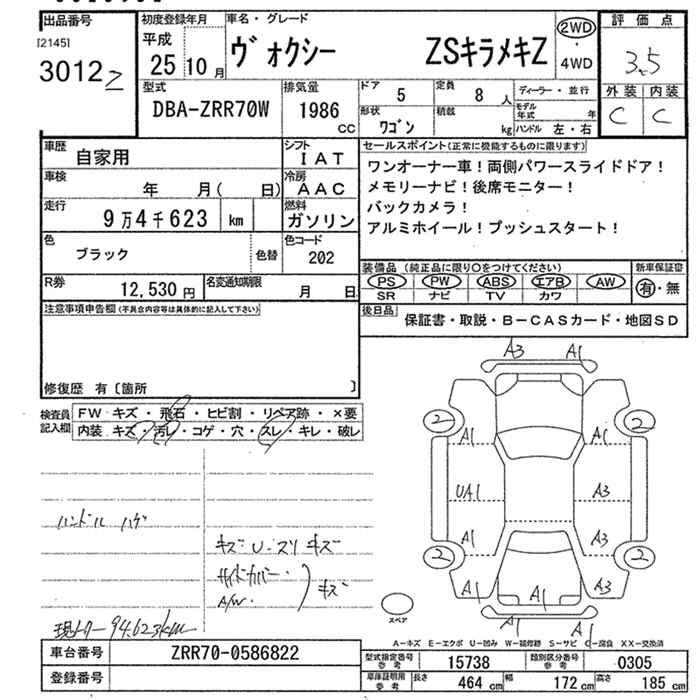 出品番号 初度登録年月 車名・グレード 評価点
[2145] 平成 ヴォクシー ZSキラメキZ 2WD ・ 4WD 3.5
3012 2 25 10月
型式 排気量 ドア 5 定員 8人 ディーラー・並行 外装 内装
DBA-ZRR70W 1986 CC 形状 ワゴン 積載 kg モデル年式 年 C C
ハンドル 左・右
車歴 自家用 シフト IAT セールスポイント(正常に機能するものに限ります)
車検 年 月( 日) 冷房 AAC ワンオーナー車!両側パワースライドドア!
メモリーナビ!後席モニター!
走行 9万4千623 km 燃料 ガソリン バックカメラ!
アルミホイール!プッシュスタート!
色 ブラック 色替 色コード 202
R券 12,530円 名変通知期限 月 日 装備品(純正品に限り○をつけてください) 新車保証書
PS PW ABS エアB AW 有・無
SR ナビ TV カワ
注意事項申告欄(不具合内容等は具体的に記入して下さい) 後日品 保証書・取説・B-CASカード・地図SD
修復歴 有〔箇所 〕
検査員記入欄 FW キズ・飛石・ヒビ割・リペア跡・×要
内装 キズ・汚レ・コゲ・穴・スレ・キレ・破レ
A3 A1
2 2
A1 A1
UA1 A3
A1 A3
2 2
A1 A1 A3
A1 A1
ハンドル ハゲ
キズ U・スリ キズ
サイドカバー・
A/W・ ) キズ
スペア
現メーター 94.623km
A-キズ E-エクボ U-凹み W-補修跡 S-サビ C-腐食 XX-交換済
車台番号 ZRR70-0586822 型式指定番号 参考 15738 類別区分番号 参考 0305
登録番号 車庫証明用 参考 長さ 464 cm 幅 172 cm 高さ 185 cm